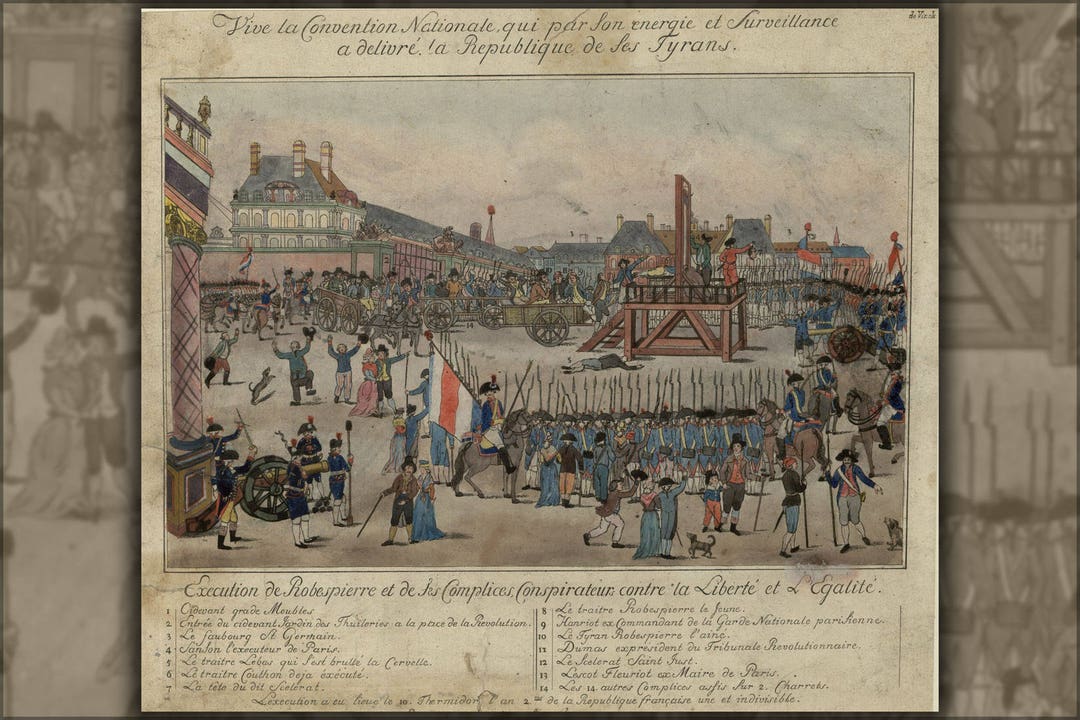 de Vinck
Vive la Convention Nationale, qui par son energie et Surveillance
a delivré la Republique de ses Tyrans.
14
Execution de Robespierre et de ses Complices Conspirateurs contre la Liberté et L'Egalité.
1 Cidevant grade Meubles
2 Entrée du cidevant Jardin des Thuileries a la place de la Revolution.
3 Le faubourg St Germain.
4 Sanson l'executeur de Paris.
5 Le traitre Lebas qui s'est brullé la Cervelle.
6 Le traitre Couthon deja execute.
7 La tête du dit Scelerat.
8 Le traitre Robespierre le Jeune.
9 Hanriot ex Commandant de la Garde Nationale parisienne.
10 Le Tyran Robespierre l'ainé.
11 Dumas expresident du Tribunale Revolutionnaire.
12 Le Scelerat Saint Just.
13 Lescot Fleuriot ex Maire de Paris.
14 Les 14 autres Complices assis sur 2. Charrets.
L'execution a eu lieu le 10. Thermidor l'an 2me de la Republique française une et indivisible.